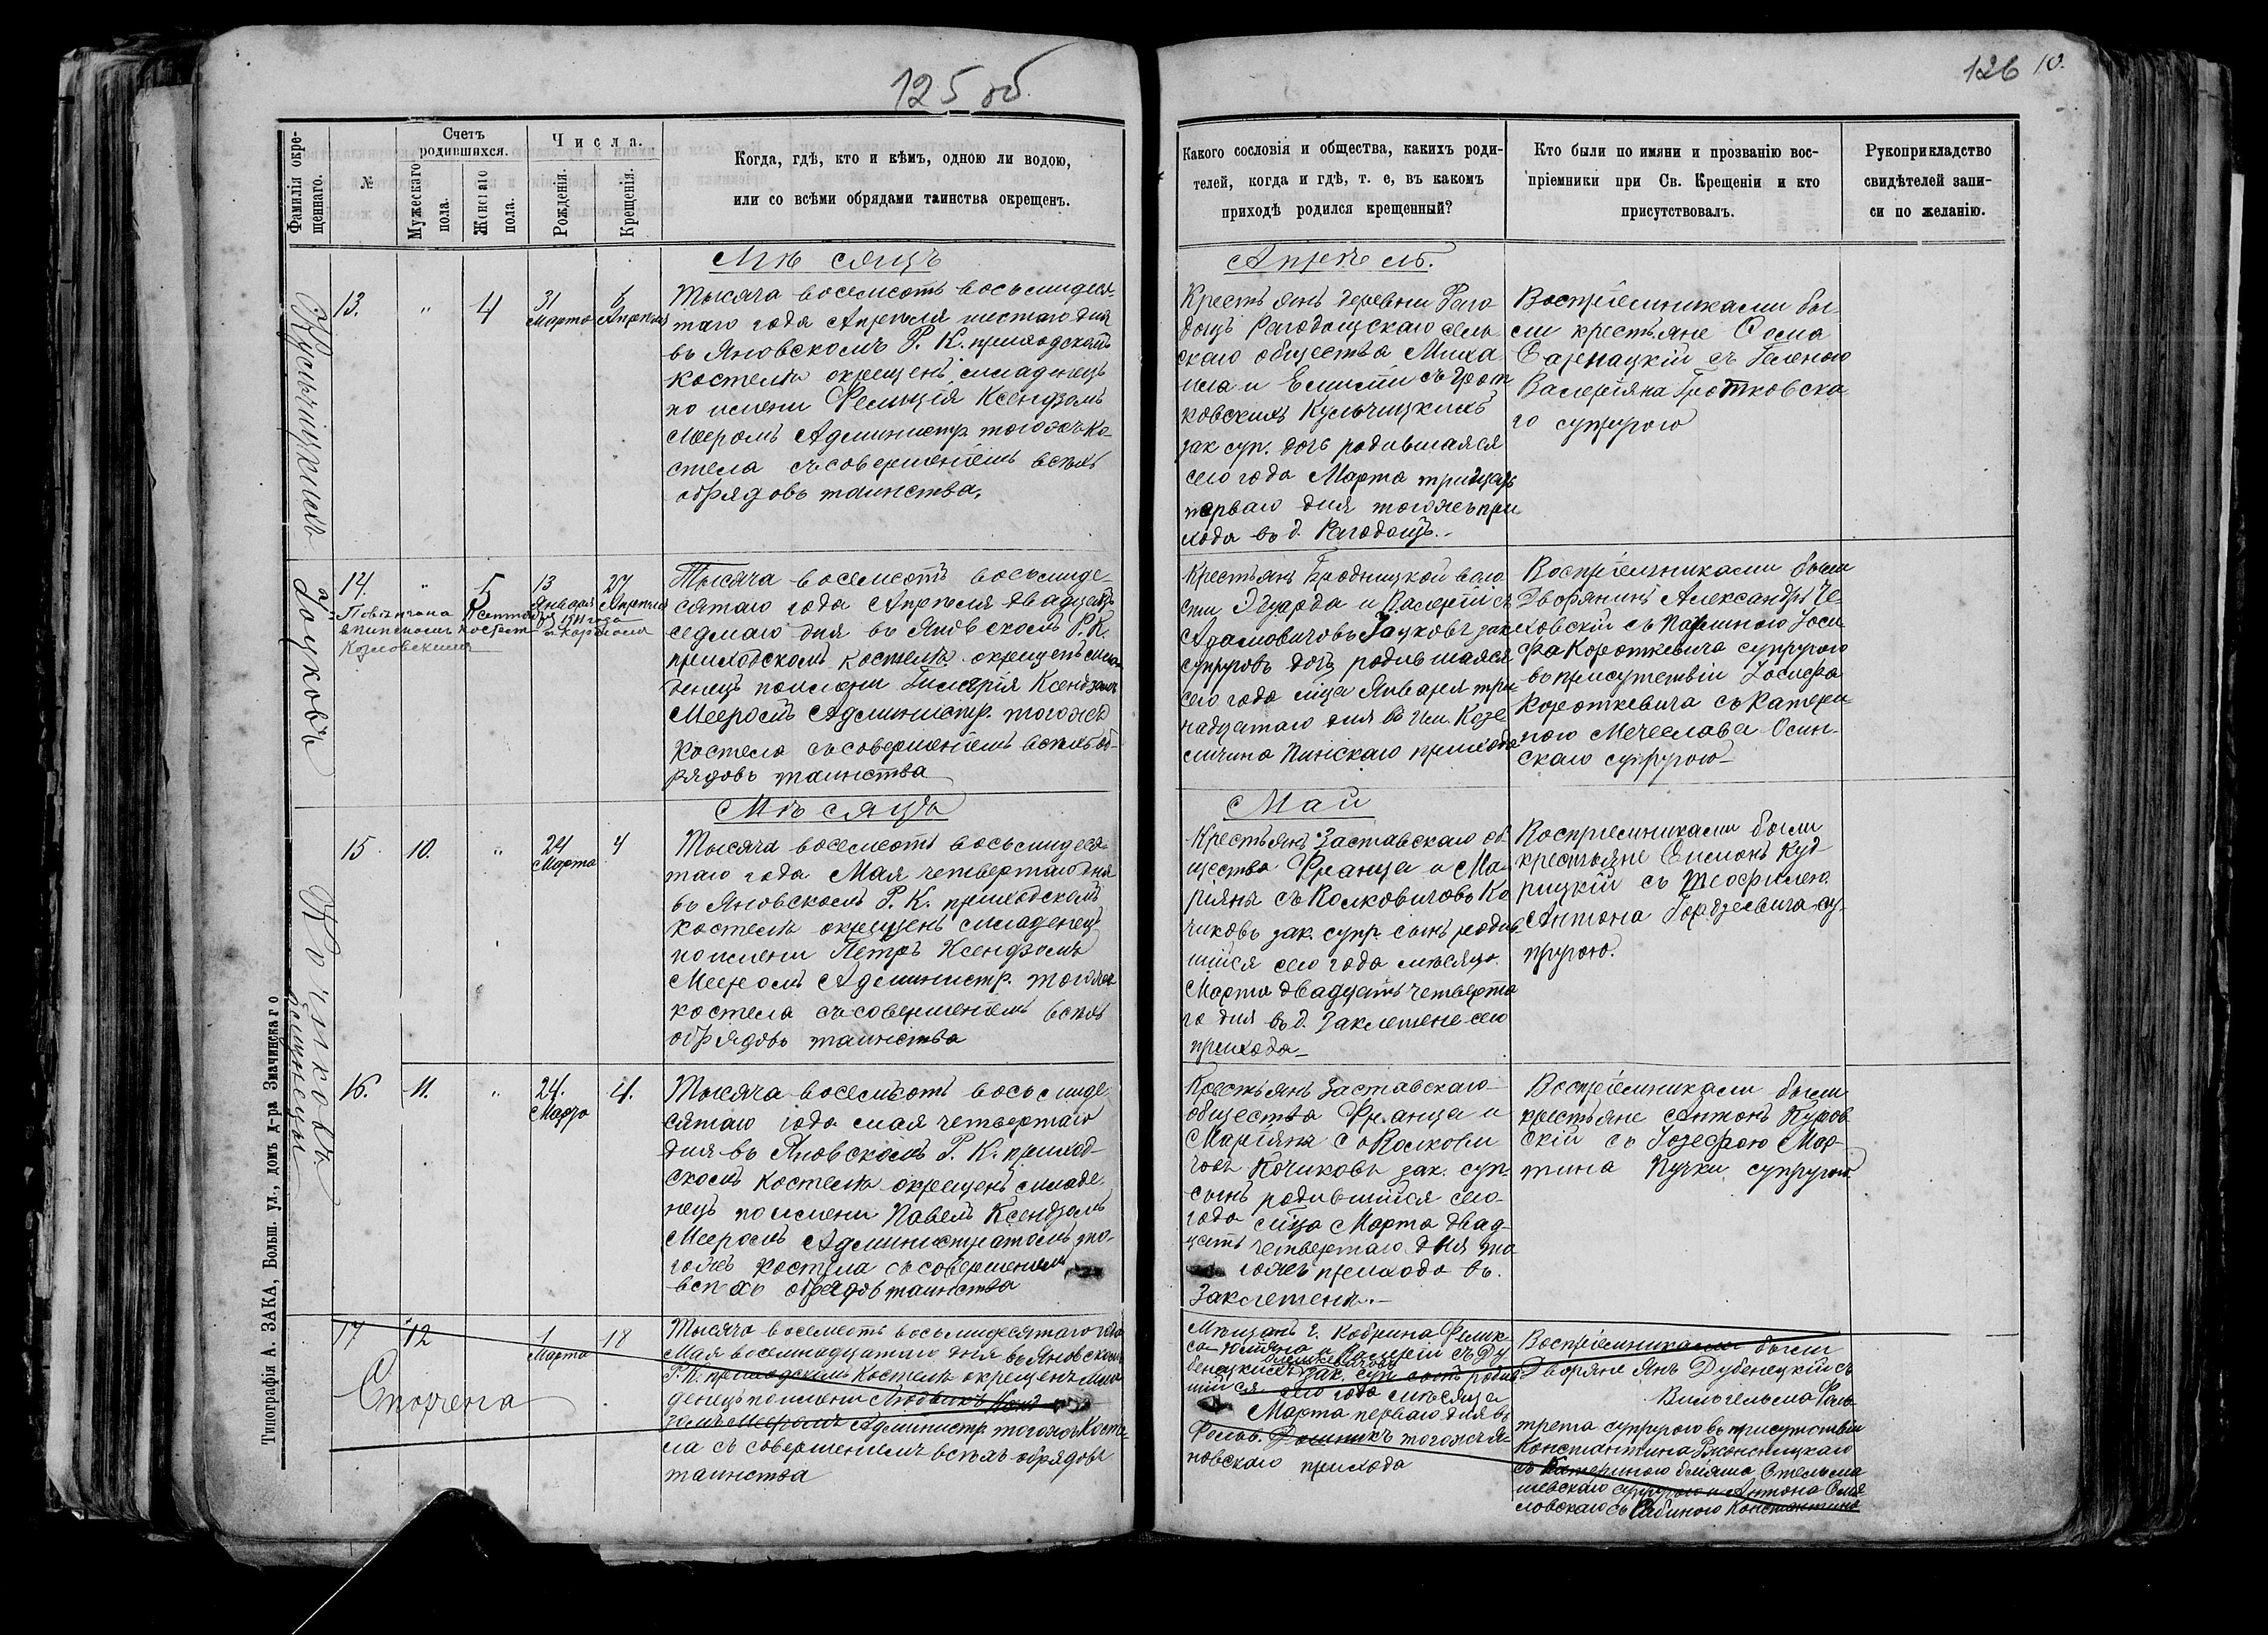 125 об.
126 10.
Фамилія окре-
щеннаго.
№
Счетъ
родившихся.
Мужескаго
пола.
Женскаго
пола.
Числа.
Рожденія.
Крещенія.
Когда, гдѣ, кто и кѣмъ, одною ли водою,
или со всѣми обрядами таинства окрещенъ.
Какого сословія и общества, какихъ роди-
телей, когда и гдѣ, т. е, въ какомъ
приходѣ родился крещенный?
Кто были по имяни и прозванію вос-
пріемники при Св. Крещеніи и кто
присутствовалъ.
Рукоприкладство
свидѣтелей запи-
си по желанію.
Мѣсяцъ
Апрѣль.
Кульчицкихъ
13.
"
4
31
Марта
6
Апрѣля
Тысяча восемсотъ восьмидеся-
таго года Апрѣля шестаго дня
въ Яновскомъ Р. К. приходскомъ
костелѣ окрещенъ младенецъ
по имени Фелиція Ксендзомъ
Мееромъ Администр. тогожъ ко-
стела съ совершеніемъ всѣхъ
обрядовъ таинства.
Крестьянъ деревни Рого
дощъ Рагодощскаго сель
скаго общества Миха
ила и Емиліи съ Грот
ковскихъ Кульчицкихъ
зак суп. дочь родившаяся
сего года Марта тридцать
перваго дня тогожъ при
хода въ д. Рагодощъ.-
Воспріемниками бы-
ли крестьяне Сома
съ Еленою
Валеріяна Гротковска
го супругою
Гацковъ
14.
"
5
13
Января
27
Апрѣля
Повѣнчана
въ Пинскомъ костелѣ
1911 года
Козловскимъ
Тысяча восемсотъ восьмиде-
сятаго года Апрѣля двадцать
седмаго дня въ Яновскомъ Р. К.
приходскомъ костелѣ окрещенъ мла-
денецъ по имени Гилярія Ксендзомъ
Мееромъ Администр. тогожъ
костела съ совершеніемъ всѣхъ об-
рядовъ таинства
Крестьянъ Бродницкой воло
сти Эдуарда и Валеріи съ
Адамовичовъ Гацковъ зак
супруговъ дочь родившаяся
сего года м-ца Января три-
надцатаго дня въ им. Козе
личина Пинскаго прихода
Воспріемниками были
Дворянинъ Александръ Че-
ховскій съ Павлиною Іоси-
фа Короткевича супругою
въ присутствіи Іосифа
Короткевича съ Катери-
ною Мечеслава Осин-
скаго супругою-
Мѣсяцъ
Май
Кочиковъ
близнецы
15
10.
"
24
Марта
4
Тысяча восемсотъ восьмидеся-
таго года Мая четвертаго дня
въ Яновскомъ Р. К. приходскомъ
костелѣ окрещенъ младенецъ
по имени Петръ Ксендзомъ
Мееромъ Администр. тогожъ
костела съ совершеніемъ всѣхъ
обрядовъ таинства
Крестьянъ Заставскаго об-
щества Франца и Ма-
ріяны съ Волковичовъ Ко
чиковъ зак. супр. сынъ родив
шійся сего года мѣсяца
Марта двадцать четверта
го дня въ д. Заклетене сего
прихода-
Воспріемниками были
крестьяне Симонъ Куд-
рицкій съ Теофилею
Антона Гордзеевича су-
пругою.
16.
11.
"
24.
Марта
4.
Тысяча восемсотъ восьмиде
сятаго года мая четвертаго
дня въ Яновскомъ Р. К. приход-
скомъ костелѣ окрещенъ младе-
нецъ по имени Павелъ Ксендзомъ
Мееромъ Администраторомъ то-
гожъ костела съ совершеніемъ
всѣхъ обрядовъ таинства
Крестьянъ Заставскаго
общества Франца и
Маріяны съ Волкови
човъ Кочиковъ зак. суп
сынъ родившійся сего
года м-ца Марта двад-
цать четвертаго дня то
гожъ прихода въ.
Заклетени.-
Воспріемниками были
крестьяне Антонъ Куров
скій съ Іозефою Мар-
тина Пучки супругою
17
12
1
Марта
18
Спорчена
Тысяча восемсотъ восьмидесятаго года
Мая восемнадцатаго дня въ Яновскомъ
Р. К. приходскомъ Костелѣ окрещенъ мла
денецъ по имени Людвикъ Ксенд
зомъ Мееромъ Администр. тогожъ Косте-
ла съ совершеніемъ всѣхъ обрядовъ
таинства
Мѣщанъ г. Кобрина Феликс
са Юліяна и Валеріи съ Ду
бенецкихъ зак. суп. сынъ родив
шійся сего года мѣсяца
Марта перваго дня въ
Фольв. тогожъ Я-
новскаго прихода
Воспріемниками были
Дворяне Янъ Дубенецкій съ
Вильгельма Фаль
трета супругою въ присутствіи
Константина
съ Катериною
супругою и Антона
съ Сабиною Константина
Типографія А. ЗАКА, Больш. ул., домъ д-ра Значинскаго